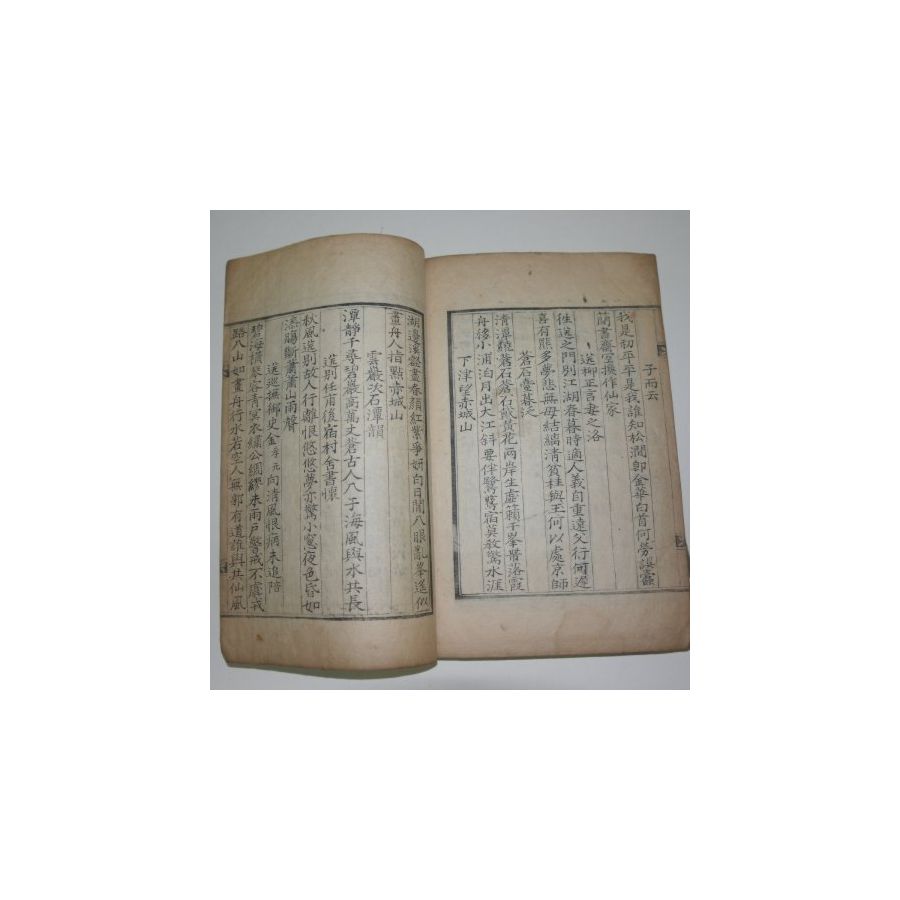 子而云
我是初平平是我誰知松澗卽金華白首何勞誤靈
蘭晝齋室換作仙家
送柳正言妻之洛
往送之門別江湖春暮時適人義自重遠父行何遲
喜有熊多夢悲無母結縭清貧桂與玉何以處京師
蒼石臺暮泛
清潭繞蒼石蒼石戴黃花两岸生虛籟千峯帶落霞
舟移小浦泊月出大江斜要伴鷺鶩宿莫敎驚水涯
下津望赤城山
湖邊濃豁畫春顔紅紫爭妍白日閒入眼亂峯遙似
畫舟人指點赤城山
雲巖次石潭韻
潭靜千尋碧巖高萬丈蒼古人八子海風與水共長
送別任甫後宿村舍書懷
秋風送別故人行離恨悠悠夢亦驚小窓夜色昏如
漆腸斷蕭蕭山雨聲
送巡撫御史金 向清風恨病未追陪
碧海橫琴客青冥衣繡公綢繆未雨戶警戒不虞戎
路入山如畫舟行水若空人無郭有道誰與共仙風